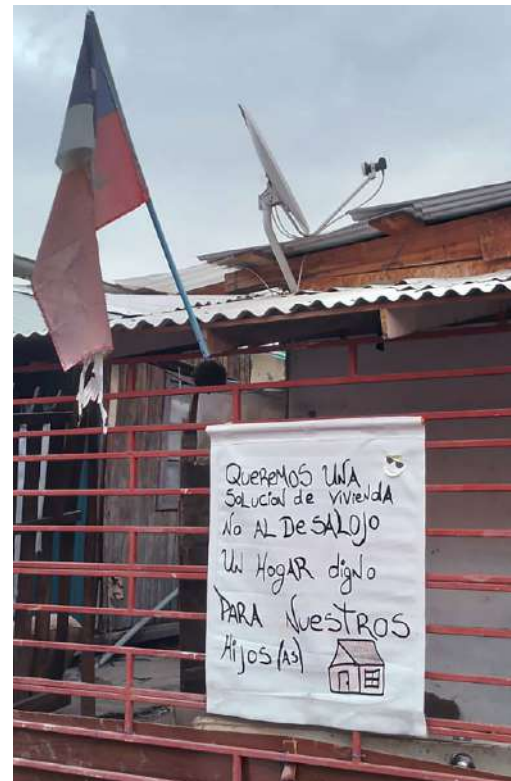 QUEREMOS UNA
SOLUCION de VIVIENdA
NO AL DeSALOJO
UN HOGAR digNo
PARA NUeSTROS
Hijos (AS)